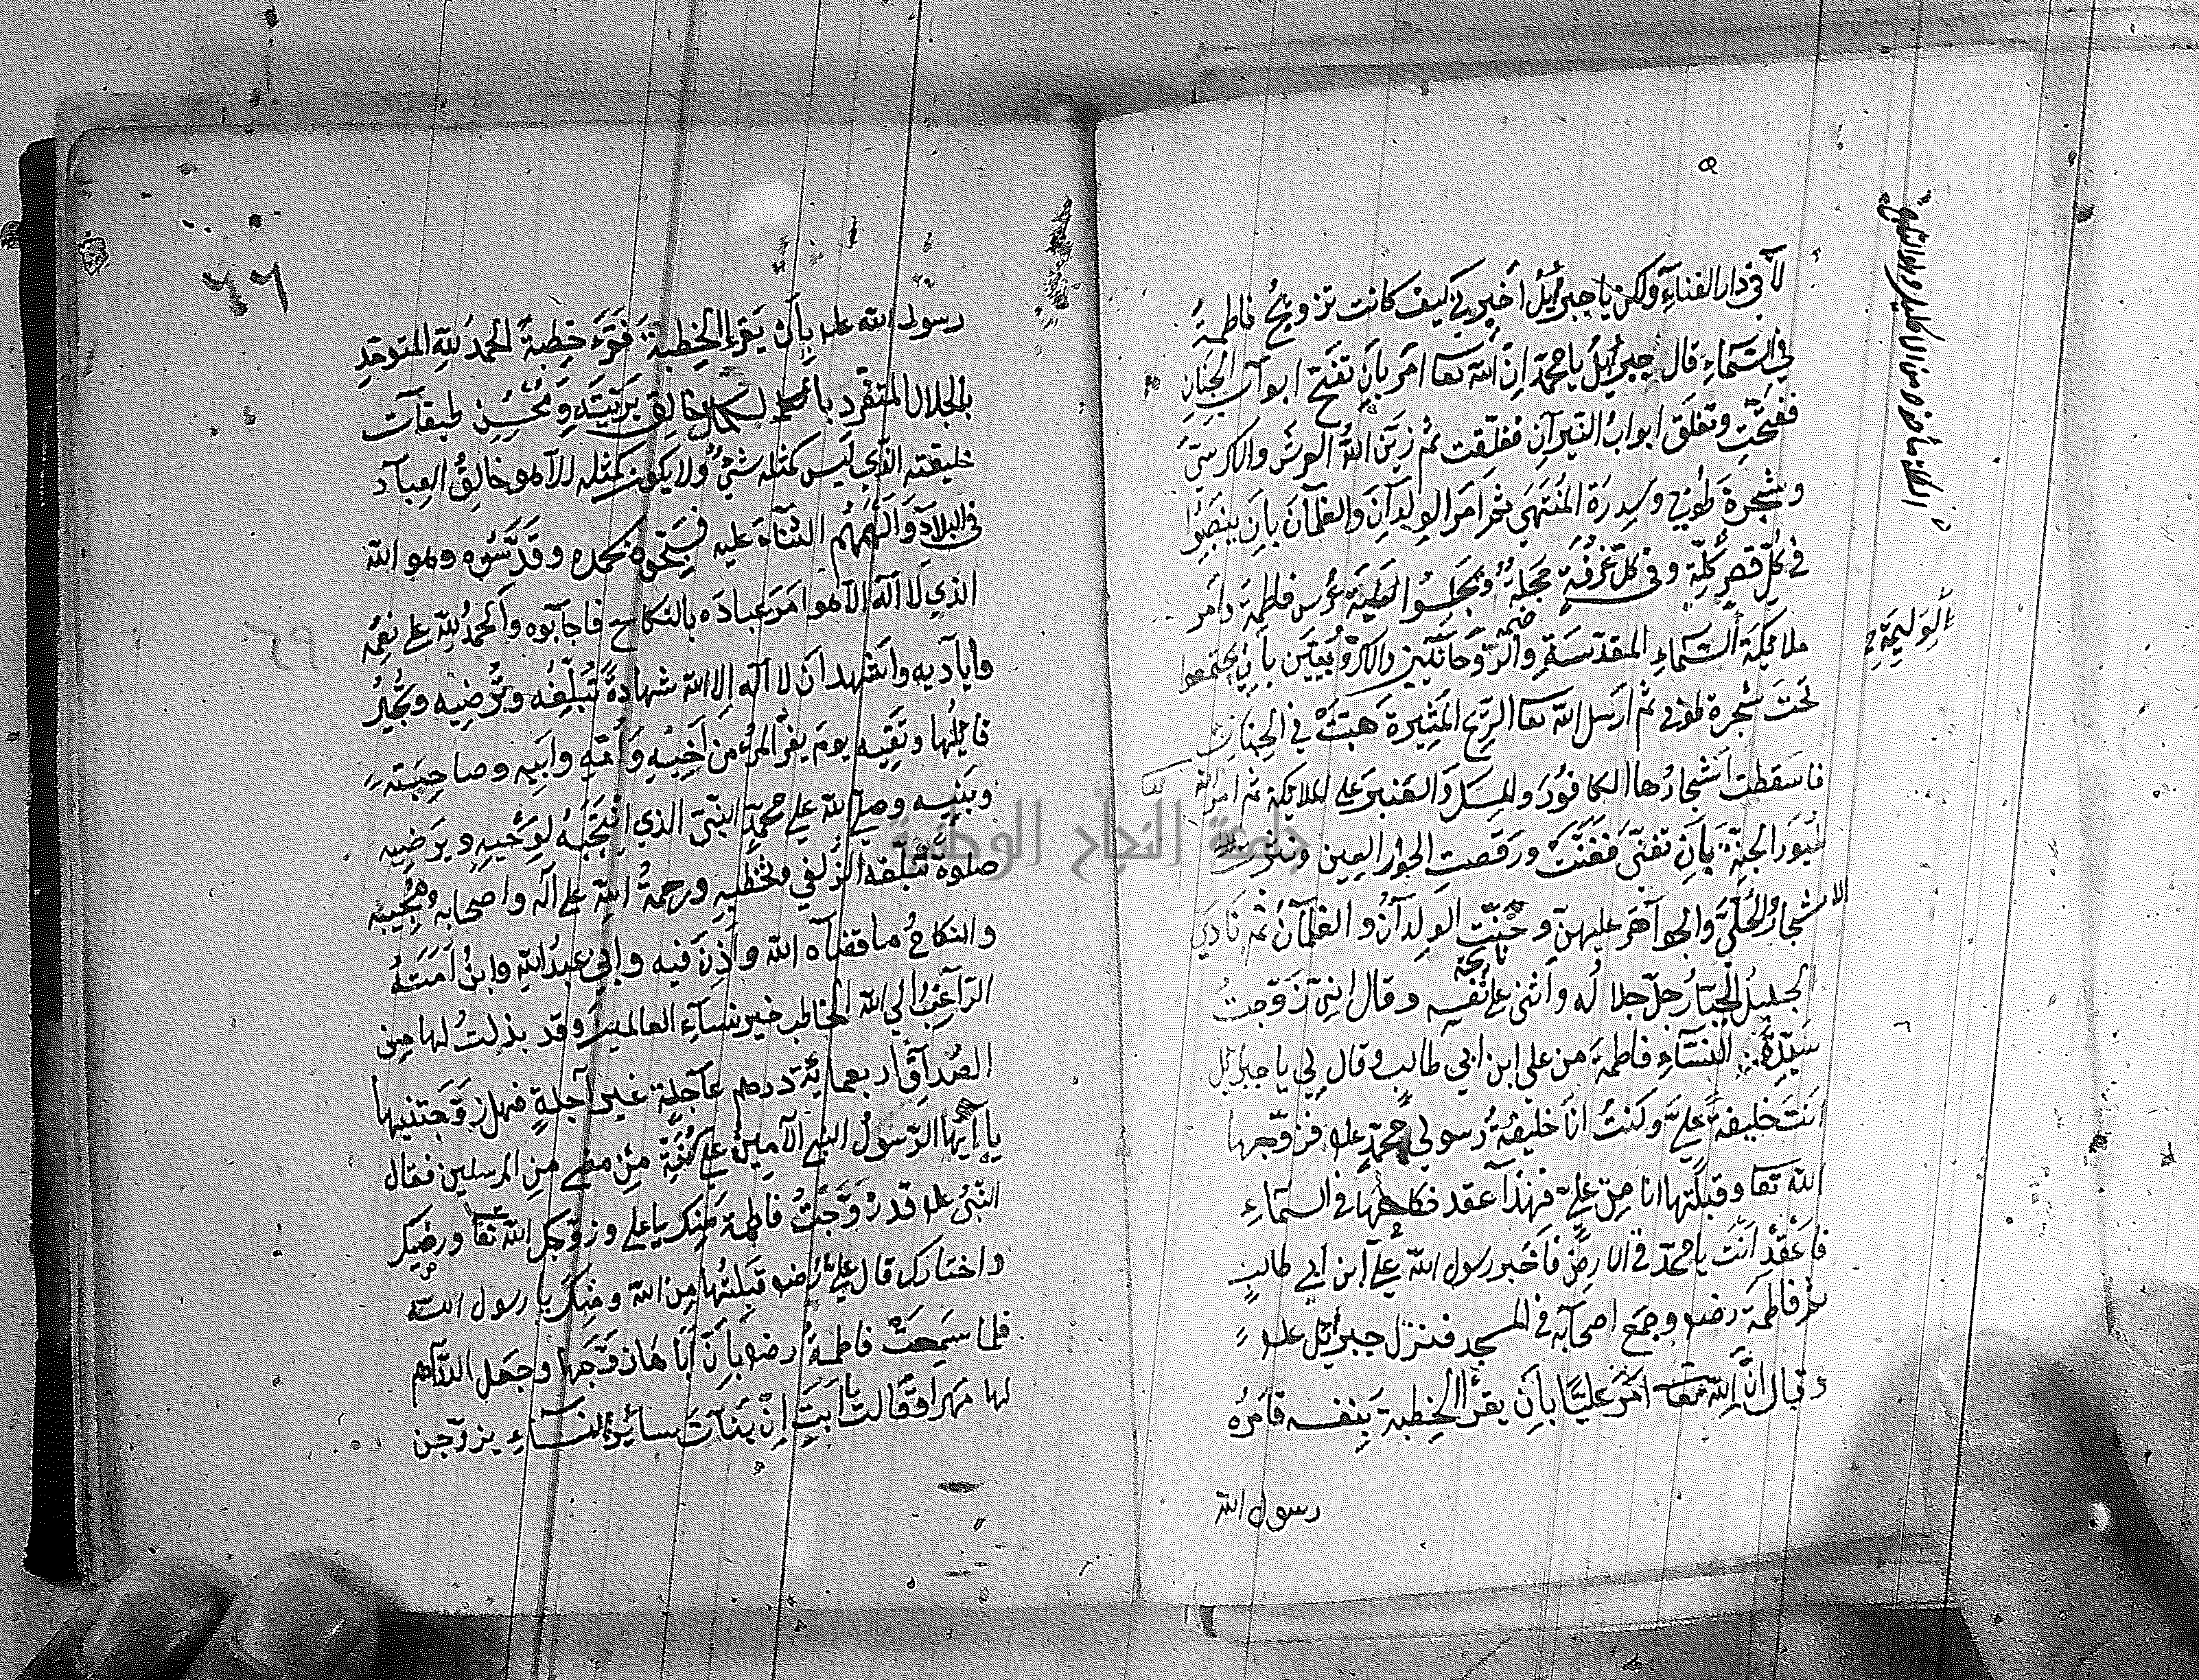 لا في دار الفناء ولكن يا جبرائيل اخبرني كيف كانت تزويج فاطمة
في السماء قال جبرائيل يا محمد ان الله تعا امر بان تفتح ابواب الجنان
ففتحت وتغلق ابواب النيران فغلقت ثم زين الله العرش والكرسي
وشجرة طوبى وسدرة المنتهى ثم امر الولدان والغلمان بان ينصبوا
في كل قصر كلة وفي كل غرفة حجلة ويجلسوا لوليمة عرس فاطمة وامر
ملائكة السماء المقدسة والروحانيين والكروبيين بان يجتمعوا
تحت شجرة طوبى ثم ارسل الله تعا الريح المثيرة هبت في الجنان
فاسقطت اشجارها الكافور والمسك والعنبر على الملائكة ثم امر الله تعا
طيور الجنة بان تغنى فغنت ورقصت الحور العين
الاشجار والحلي والجواهر عليهن وحنت الولدان والغلمان ثم نادى
الجليل الجبار جل جلاله واثنى على نفسه وقال اني زوجت
سيدة النساء فاطمة من علي ابن ابي طالب وقال لي يا جبرئل
انت خليفة علي وكنت انا خليفة رسولي محمد علم فزوجها
الله تعا وقبلتها انا من علي فهذا عقد نكاحها في السماء
فاعقد انت يا محمد في الارض فاخبر رسول الله علي ابن ابي طالب
ثم فاطمة رضو وجمع اصحابه في المسجد فنزل جبرئل علم
وقال ان الله تعا امر عليا بان يقرأ الخطبة بنفسه فامره
رسول الله
الوليمة
٦٦
٦٩
رسول الله علم بان يقرء الخطبة فقرء خطبة الحمد لله المتوحد
بالجلال المتفرد بالكمال خالق بريته ومحسن طبقات
خليقته الذي ليس كمثله شيء ولا يكون كمثله الا هو خالق العباد
في البلاد والهمهم الثناء عليه فسبحوه بحمده وقدسوه وهو الله
الذي لا اله الا هو امر عباده بالنكاح فاجابوه والحمد لله على نعمه
واياديه واشهد ان لا اله الا الله شهادة تبلغه وترضيه وتجير
قايلها وتقيه يوم يفر المرء من اخيه وامه وابيه وصاحبته
وبنيه وصلى الله على محمد النبي الذي انتجبه لوحيه ويرضيه
صلوة تبلغه الزلفى وتحظيه ورحمة الله على اله واصحابه ومحبيه
والنكاح ما قضاه الله واذن فيه واني عبد الله وابن امته
الراغب الى الله الخاطب خير نساء العالمين وقد بذلت لها من
الصداق اربعماية درهم عاجلة غير اجلة فهل زوجتنيها
يا ايها الرسول النبي الامين على سنة من مضى من المرسلين فقال
النبي علم قد زوجت فاطمة منك يا علي وزوجك الله تعا ورضيك
واختارك قال علي رضو قبلتها من الله ومنك يا رسول الله
فلما سمعت فاطمة رضو بان اباها زوجها وجعل الدراهم
لها مهرا فقالت يا ابت ان بنات سائر النساء يزوجن